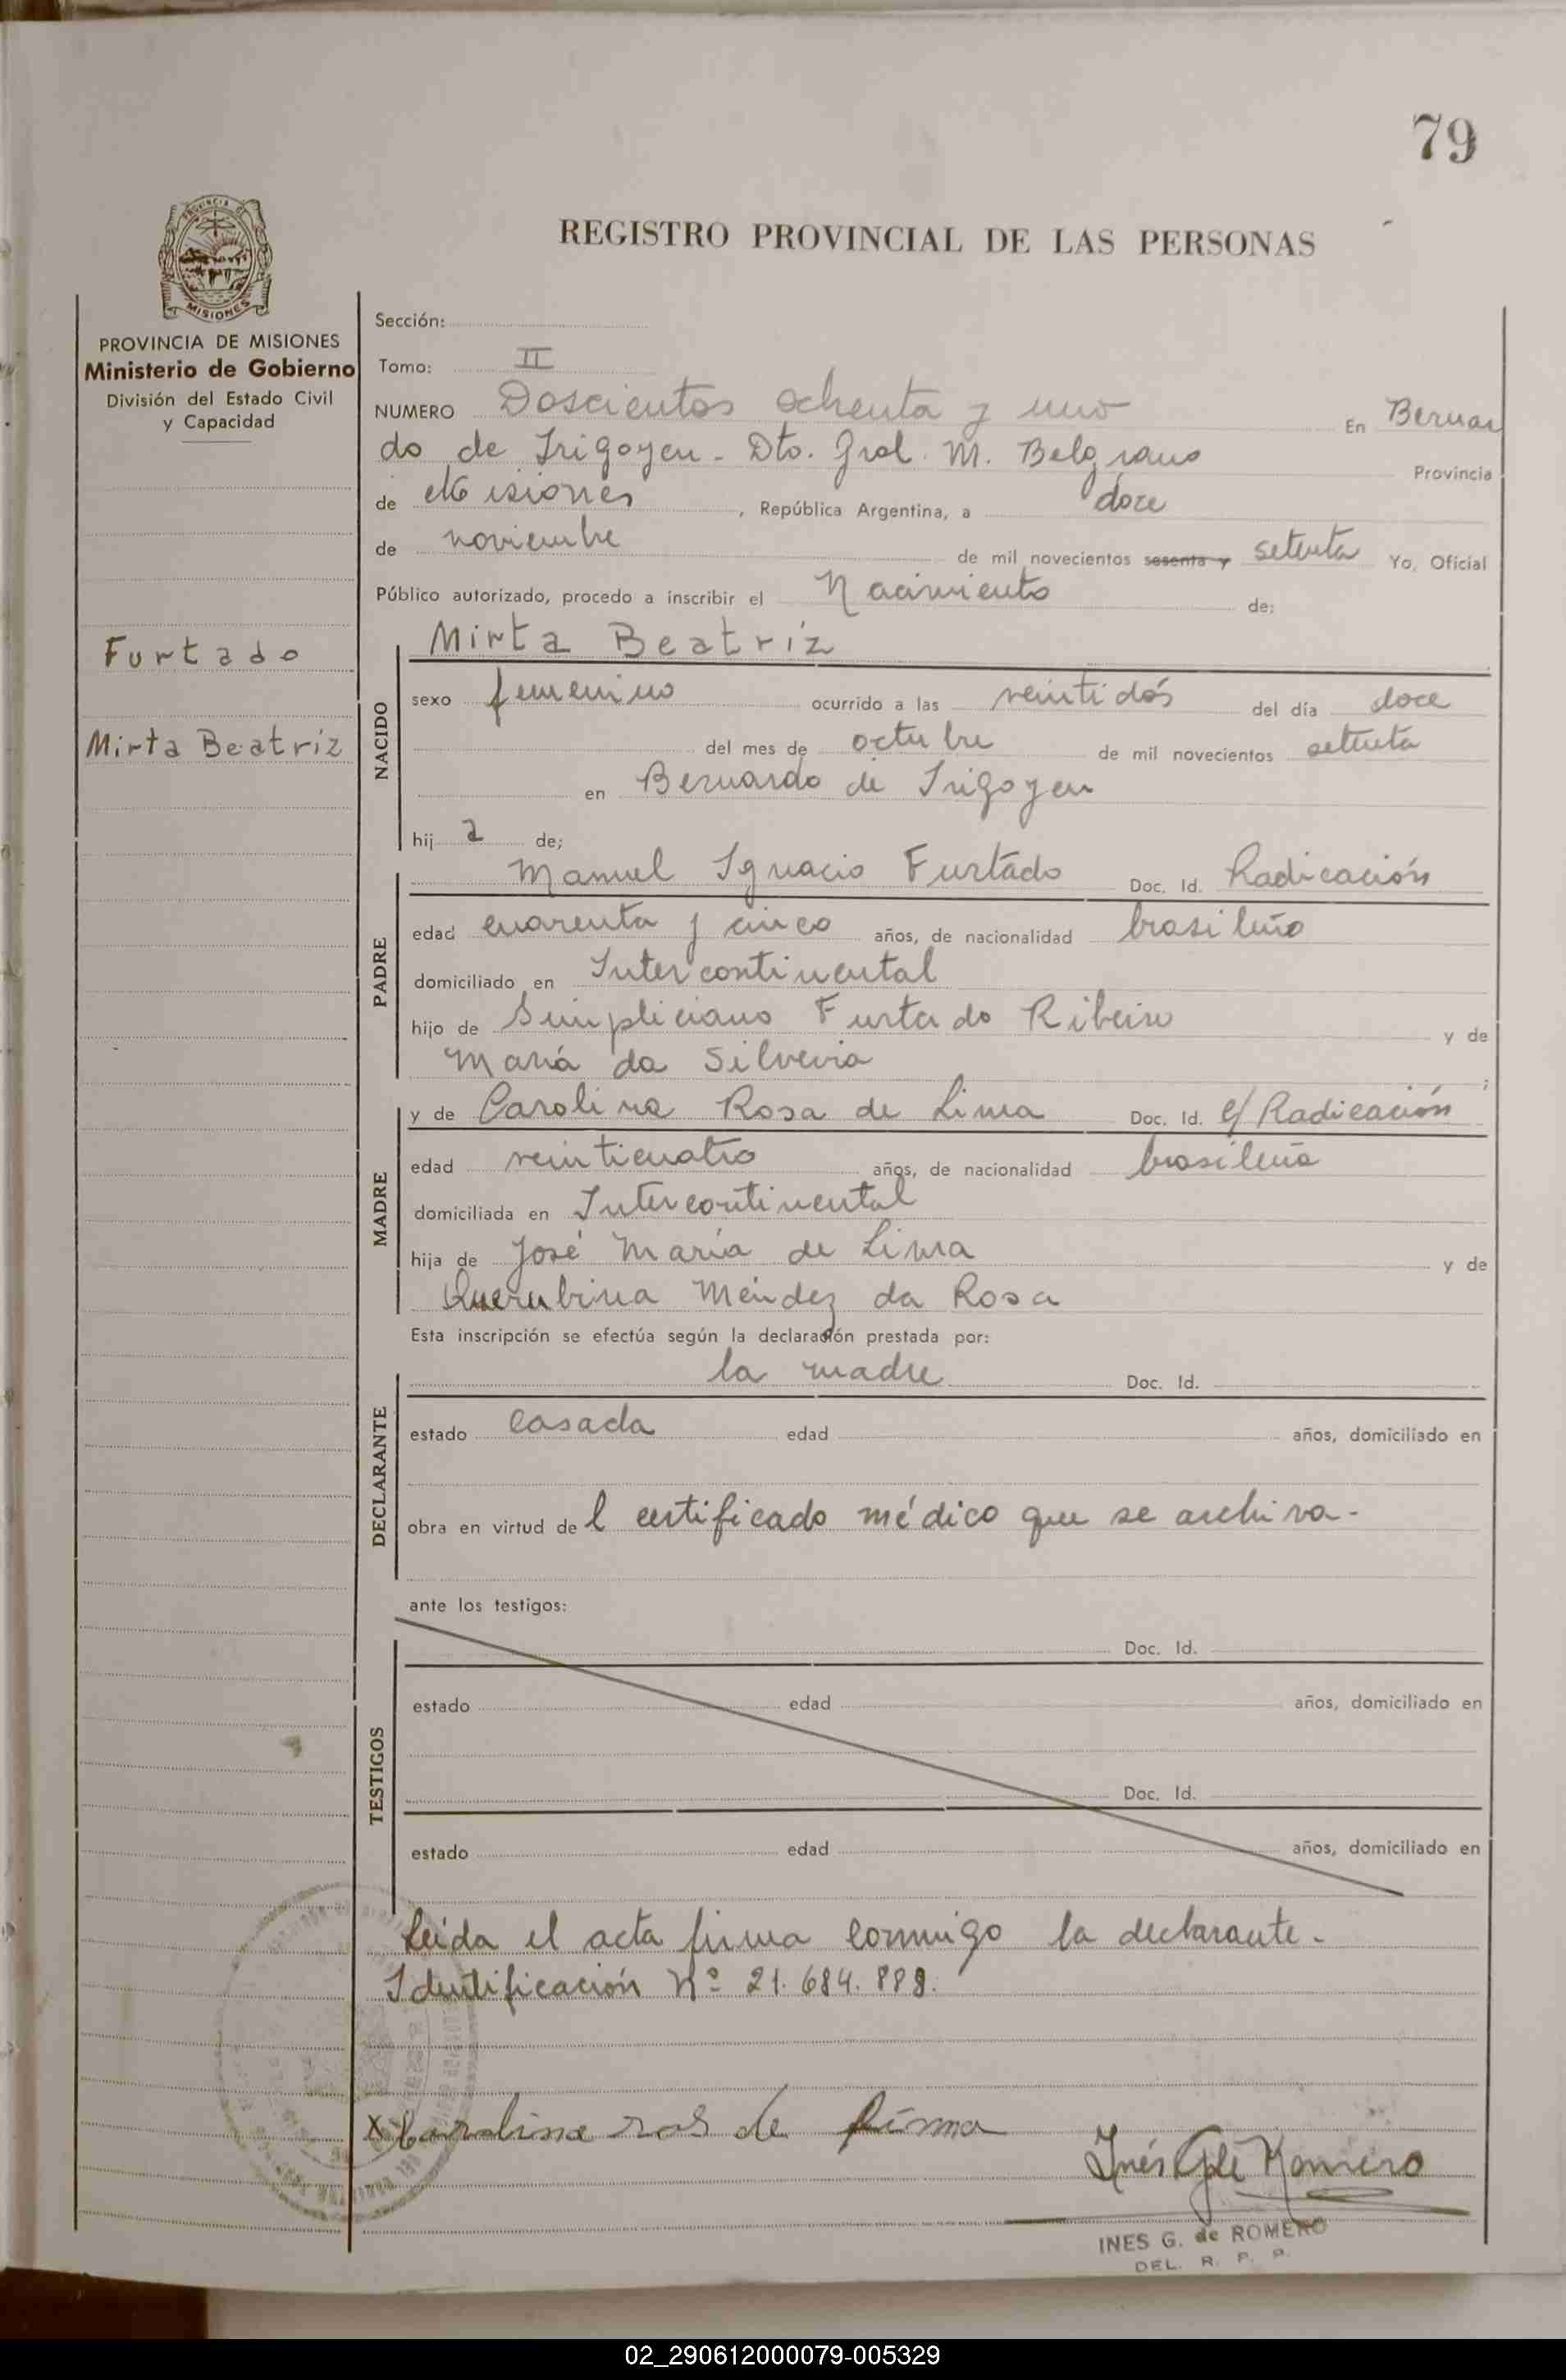 79
REGISTRO PROVINCIAL DE LAS PERSONAS
MISIONES
PROVINCIA DE MISIONES
Ministerio de Gobierno
División del Estado Civil
y Capacidad
Furtado
Mirta Beatriz
Sección:
Tomo: II
NUMERO Doscientos ochenta y uno En Bernar
do de Irigoyen - Dto. Gral. M. Belgrano Provincia
de Misiones, República Argentina, a doce
de noviembre de mil novecientos sesenta y setenta Yo, Oficial
Público autorizado, procedo a inscribir el Nacimiento de:
NACIDO
Mirta Beatriz
sexo femenino ocurrido a las veintidós del día doce
del mes de octubre de mil novecientos setenta
en Bernardo de Irigoyen
hij a de;
PADRE
Manuel Ignacio Furtado Doc. Id. Radicación
edad cuarenta y cinco años, de nacionalidad brasileño
domiciliado en Intercontinental
hijo de Simpliciano Furtado Ribeiro y de
María da Silveria ;
MADRE
y de Carolina Rosa de Lima Doc. Id. c/ Radicación
edad veinticuatro años, de nacionalidad brasileña
domiciliada en Intercontinental
hija de José María de Lima y de
Querubina Méndez da Rosa
Esta inscripción se efectúa según la declaración prestada por:
DECLARANTE
la madre Doc. Id.
estado casada edad años, domiciliado en
obra en virtud de l certificado médico que se archiva -
ante los testigos:
TESTIGOS
Doc. Id.
estado edad años, domiciliado en
Doc. Id.
estado edad años, domiciliado en
Leída el acta firma conmigo la declarante -
Identificación Nº 21.684.889.
X Carolina ros de lima
Inés G. de Romero
INES G. de ROMERO
DEL. R. P. P.
02_290612000079-005329